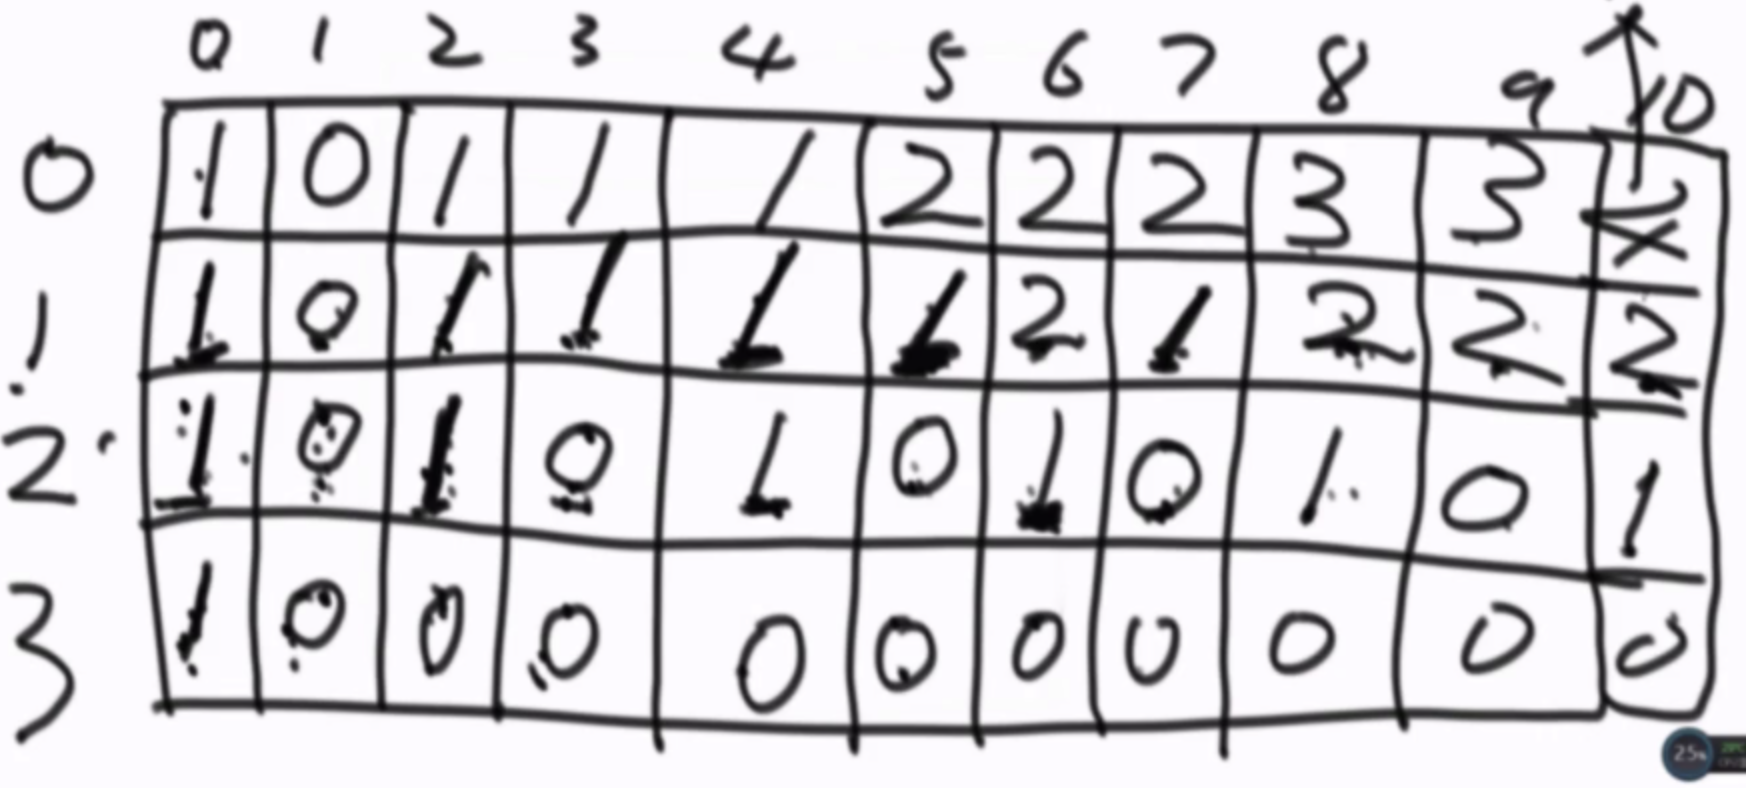 0 1 2 3 4 5 6 7 8 9 10
0 1 0 1 1 1 2 2 2 3 3
1 1 0 1 1 1 1 2 1 2 2 2
2 1 0 1 0 1 0 1 0 1 0 1
3 1 0 0 0 0 0 0 0 0 0 0
25%